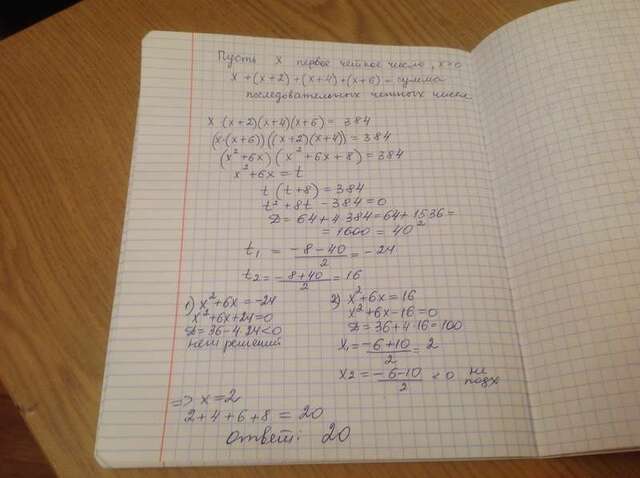 Пусть x первое четное число, x>0
x + (x+2) + (x+4) + (x+6) - сумма
последовательных четных чисел
x · (x+2)(x+4)(x+6) = 384
(x·(x+6))((x+2)(x+4)) = 384
(x²+6x)(x²+6x+8) = 384
x²+6x = t
t(t+8) = 384
t²+8t-384=0
D = 64+4·384=64+1536=
= 1600 = 40²
t₁ = (-8-40)/2 = -24
t₂ = (-8+40)/2 = 16
1) x²+6x=-24
x²+6x+24=0
D=36-4·24<0
нет решений
2) x²+6x=16
x²+6x-16=0
D=36+4·16=100
x₁=(-6+10)/2=2
x₂=(-6-10)/2<0 не подх
=> x=2
2+4+6+8=20
Ответ: 20